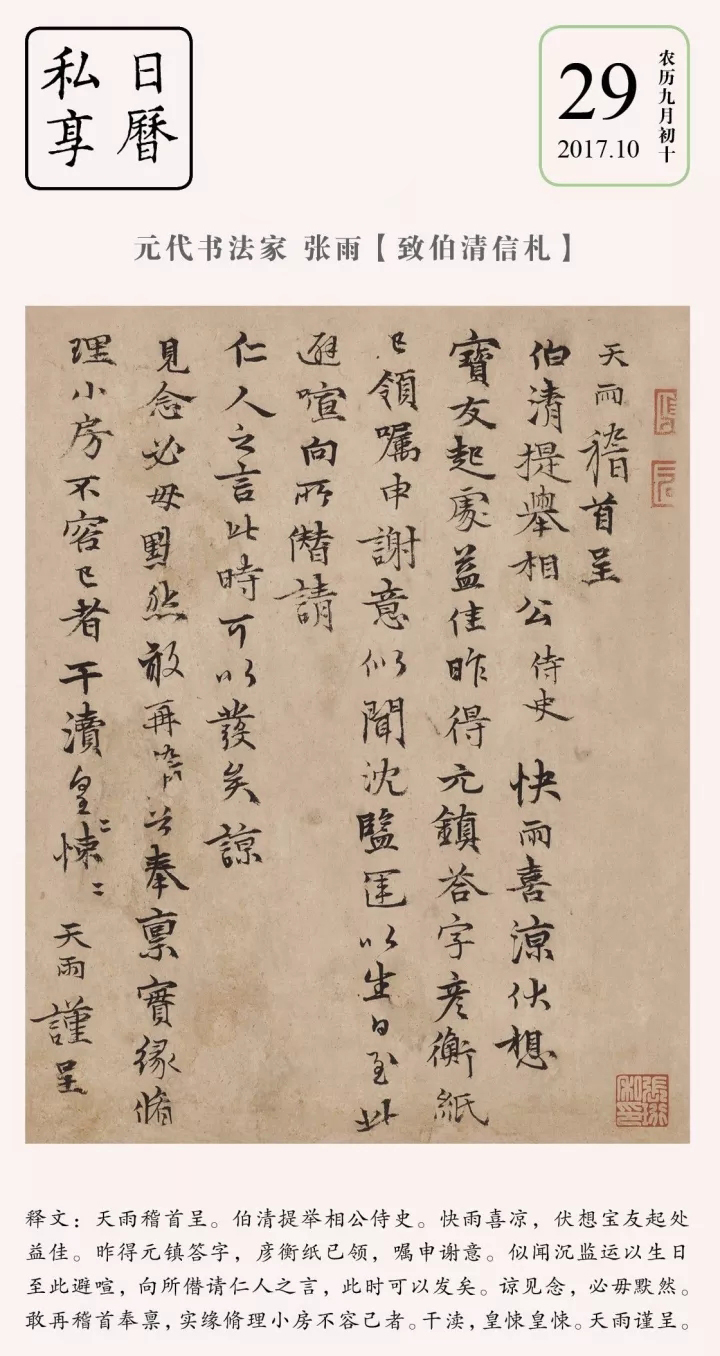 日曆
私享
29
2017.10
农历九月初十
元代书法家 张雨【致伯清信札】
天雨稽首呈
伯清提舉相公侍史 快雨喜涼伏想
寶友起處益佳昨得元鎮答字彦衡紙
已領囑申謝意似聞沈監運以生日至此
避喧向所僭請
仁人之言此時可以發矣諒
見念必毋默然敢再稽首奉禀實緣脩
理小房不容已者干瀆皇〻悚〻 天雨謹呈
释文：天雨稽首呈。伯清提举相公侍史。快雨喜凉，伏想宝友起处
益佳。昨得元镇答字，彦衡纸已领，嘱申谢意。似闻沉监运以生日
至此避喧，向所僭请仁人之言，此时可以发矣。谅见念，必毋默然。
敢再稽首奉禀，实缘脩理小房不容己者。干渎，皇悚皇悚。天雨谨呈。